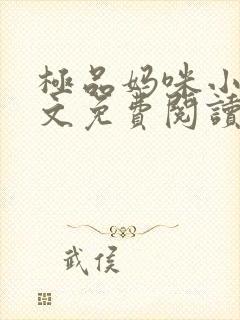 極品妈咪小
文免費閱讀
武侯